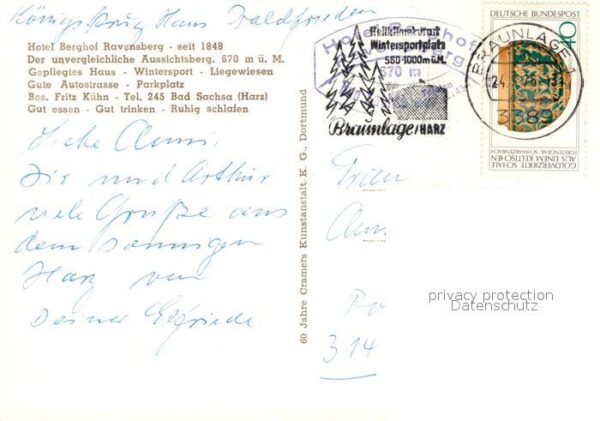 Königskrug Haus Waldfrieden
Hotel Berghof Ravensberg - seit 1848
Der unvergleichliche Aussichtsberg, 670 m ü. M.
Gepflegtes Haus - Wintersport - Liegewiesen
Gute Autostrasse - Parkplatz
Bes. Fritz Kühn - Tel. 245 Bad Sachsa (Harz)
Gut essen - Gut trinken - Ruhig schlafen
Liebe
Dir und Arthur
viele Grüße aus
dem sonnigen
Harz von
Deiner Elfriede
60 Jahre Cramers Kunstanstalt K. G., Dortmund
Hotel Berghof
670 m
Heilklimakurort
Wintersportplatz
560-1000m ü.M.
Braunlage/HARZ
BRAUNLAGE 1
24.
DEUTSCHE BUNDESPOST
40
GOLDVERZIERTE SCHALE
AUS EINEM KELTISCHEN
FÜRSTENGRAB · SCHWARZENBACH
Frau
privacy protection
Datenschutz
314